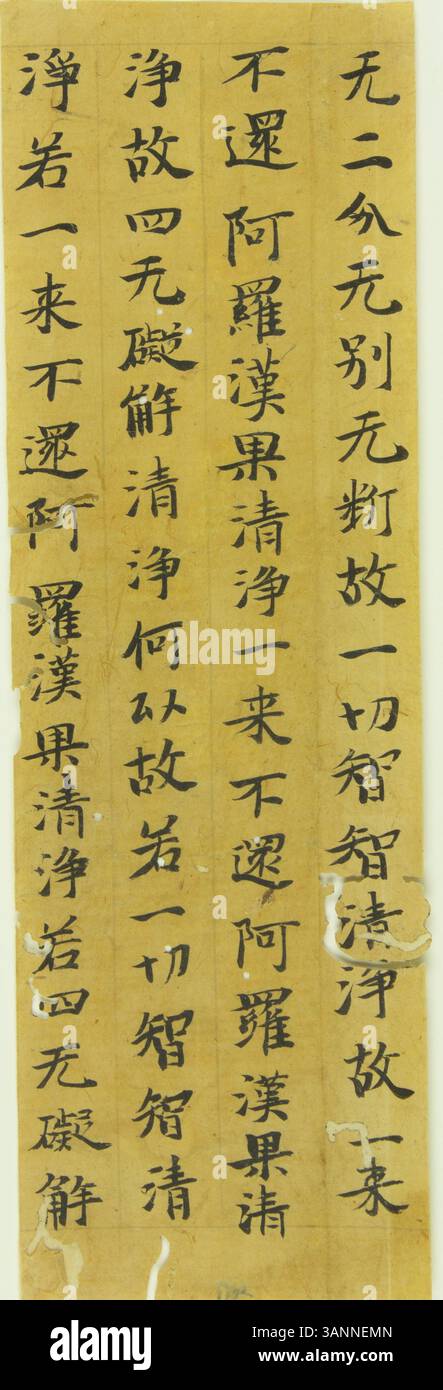 无二分无别无断故一切智智清淨故一来
不還阿羅漢果清淨一来不還阿羅漢果清
淨故四无礙解清淨何以故若一切智智清
淨若一来不還阿羅漢果清淨若四无礙解
alamy
alamy
Image ID: 3ANNEMN
www.alamy.com